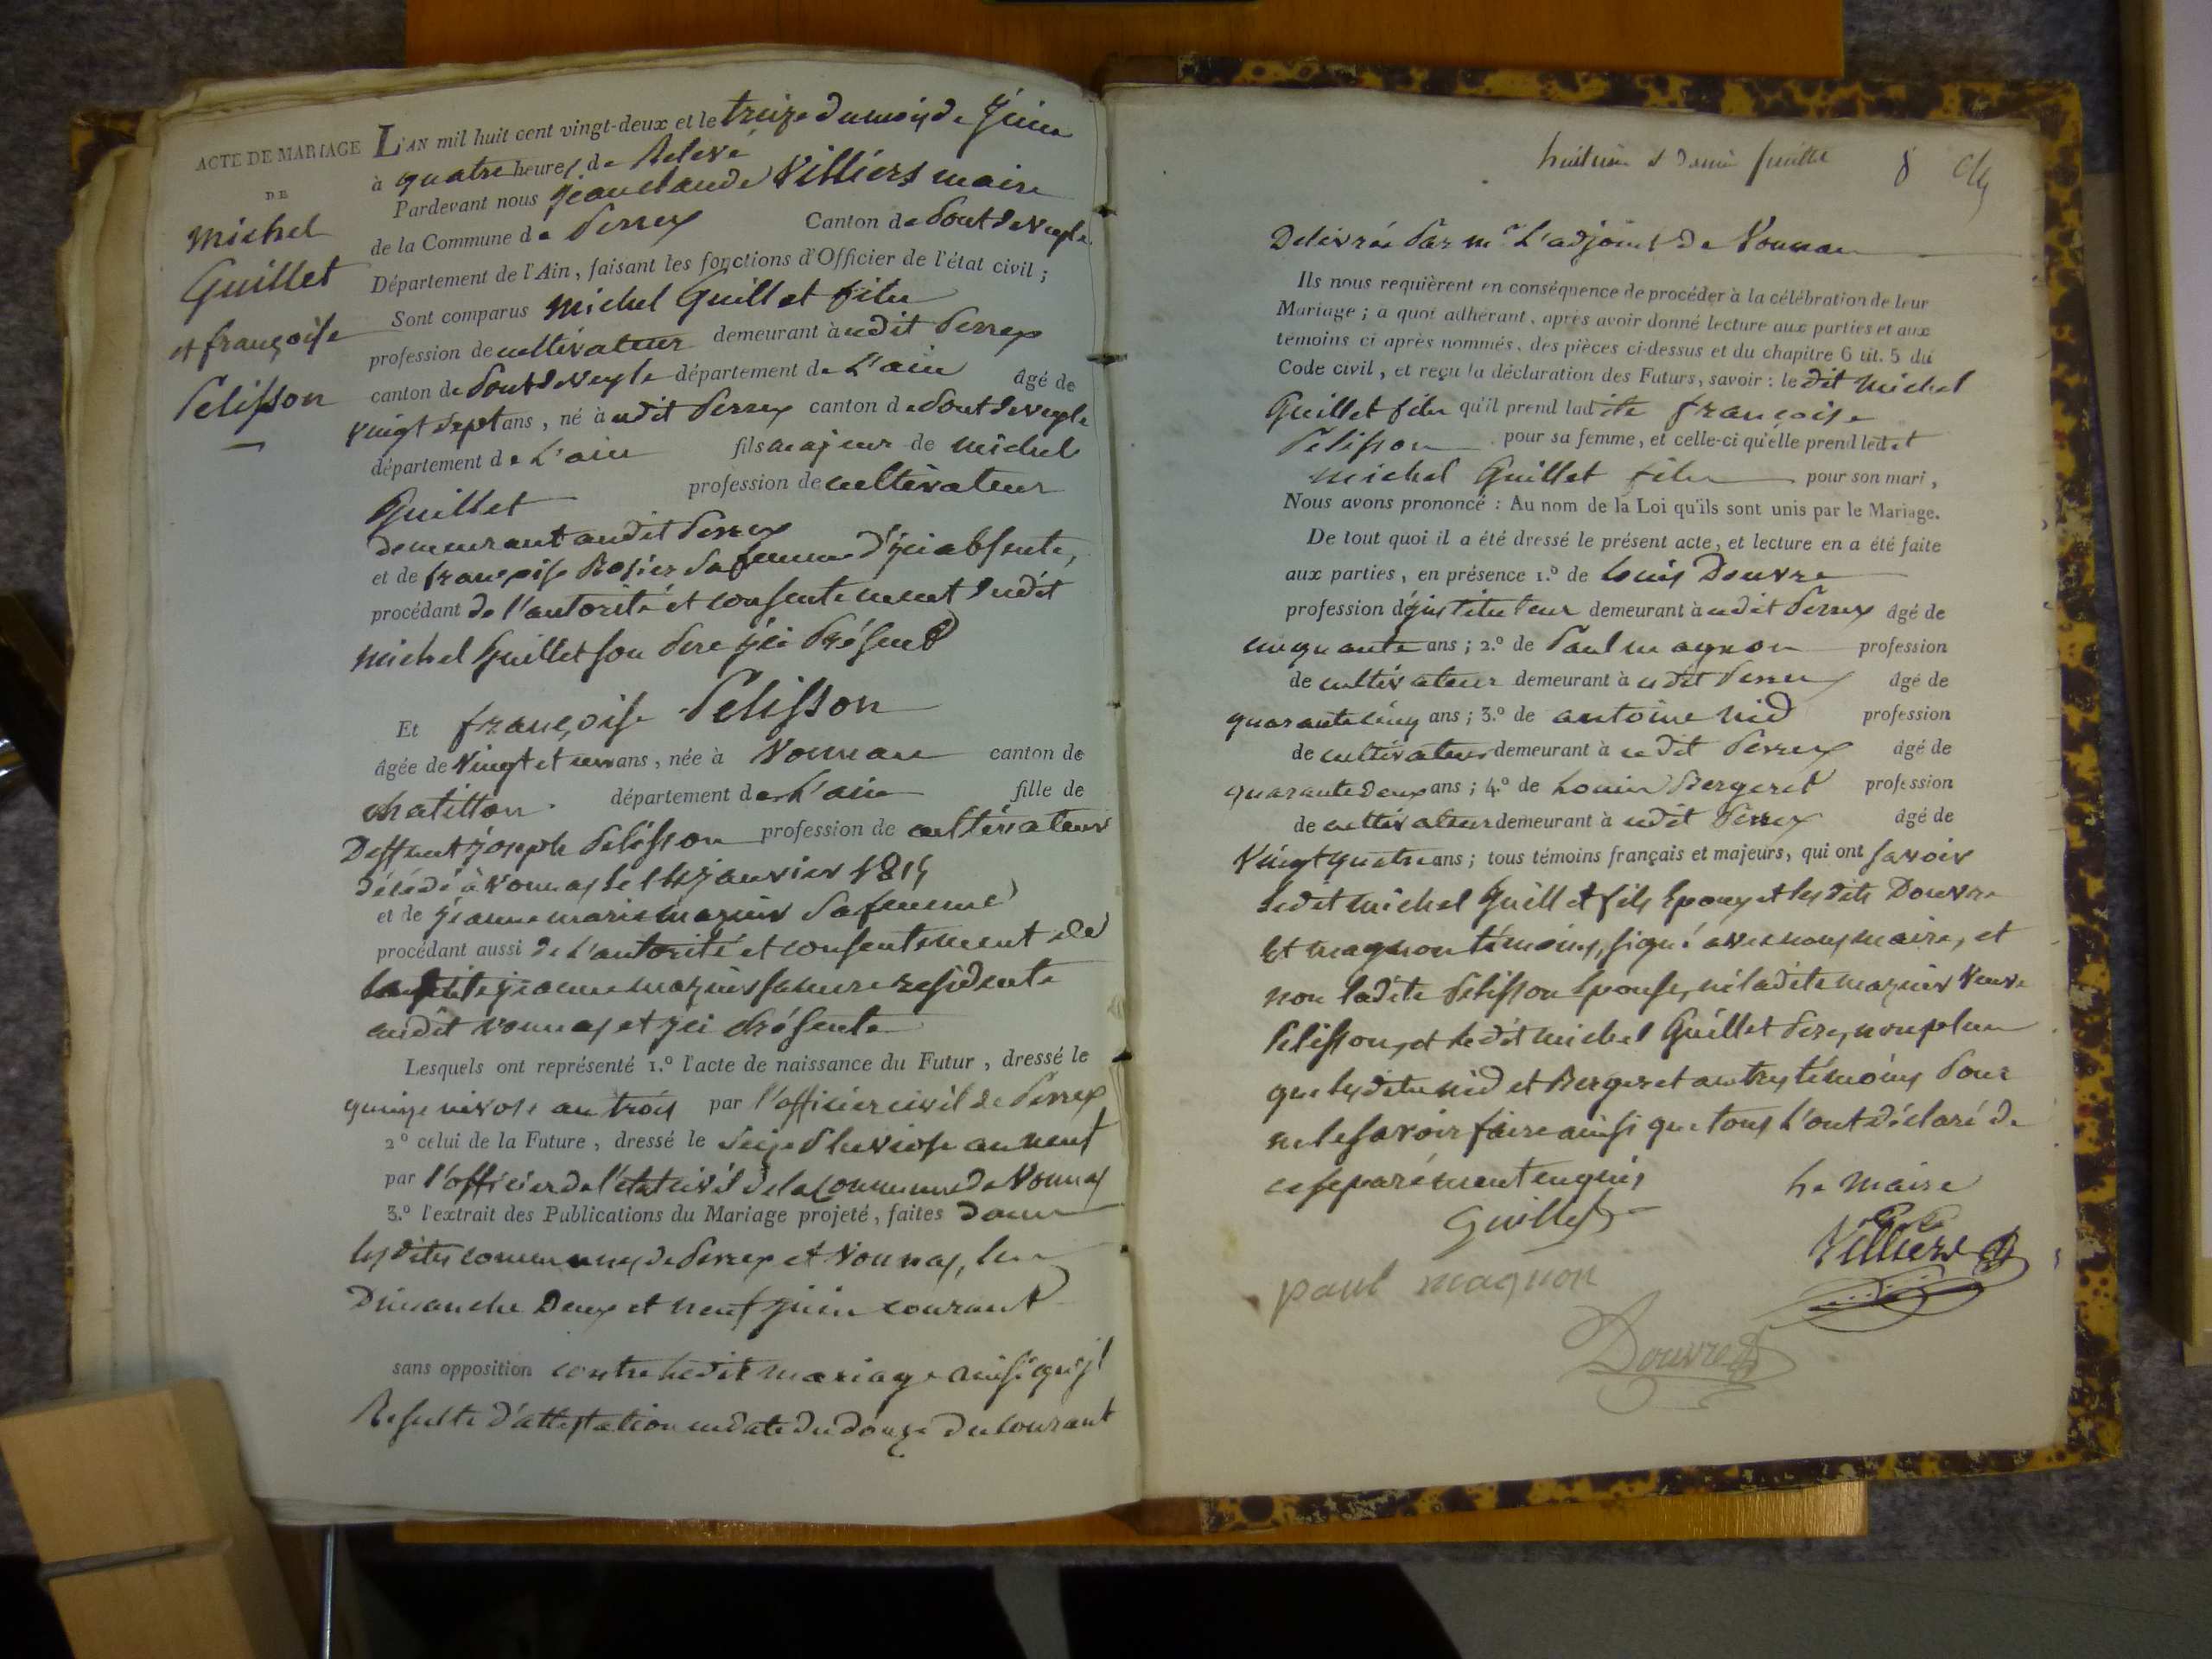 ACTE DE MARIAGE
DE
Michel
Guillet
et françoise
Pelisson
L'AN mil huit cent vingt-deux et le treize du mois de Juin
à quatre heures de Relevé
Pardevant nous Jean claude Villiers maire
de la Commune de Perrex Canton de Pont de Veyle
Département de l'Ain, faisant les fonctions d'Officier de l'état civil ;
Sont comparus Michel Guillet fils
profession de cultivateur demeurant à udit Perrex
canton de Pont de Veyle département de L'ain âgé de
vingt sept ans, né à udit Perrex canton de Pont de Veyle
département de L'ain fils majeur de michel
Guillet profession de cultivateur
demeurant audit Perrex
et de françoise Rosier Sa femme d'yci absente,
procédant de l'autorité et consentement dudit
michel Guillet son Pere yci Présent
Et françoise Pelisson
âgée de Vingt et un ans, née à Vonnas canton de
chatillon département de L'ain fille de
Deffunt Joseph Pelisson profession de cultivateur
décédé à Vonnas le 14 Janvier 1814
et de Jeanne marie mazuir Sa femme
procédant aussi de L'autorité et consentement de
laditte Jeanne mazuir sa mere residente
audit Vonnas et yci Présente
Lesquels ont représenté 1.º l'acte de naissance du Futur, dressé le
quinze nivose an trois par l'officier civil de Perrex
2º celui de la Future, dressé le Seize Pluviose an neuf
par l'officier de l'état civil de la Commune de Vonnas
3.º l'extrait des Publications du Mariage projeté, faites dans
les dites communes de Perrex et Vonnas, les
Dimanche Deux et neuf Juin courant
sans opposition contre ledit mariage ainsi qu'il
Resulte d'attestation en date du douze du courant
huitieme et dernier feuillet 8
Delivrée Par mr L'adjoint de Vonnas
Ils nous requièrent en conséquence de procéder à la célébration de leur
Mariage ; a quoi adhérant, après avoir donné lecture aux parties et aux
témoins ci après nommés, des pièces ci-dessus et du chapitre 6 tit. 5 du
Code civil, et reçu la déclaration des Futurs, savoir : le dit Michel
Guillet fils qu'il prend ladite françoise
Pelisson pour sa femme, et celle-ci qu'elle prend ledit
michel Guillet fils pour son mari,
Nous avons prononcé : Au nom de la Loi qu'ils sont unis par le Mariage.
De tout quoi il a été dressé le présent acte, et lecture en a été faite
aux parties, en présence 1.º de Louis Douvre
profession d'ynstituteur demeurant à udit Perrex âgé de
cinquante ans ; 2.º de Paul magnon profession
de cultivateur demeurant à udit Perrex âgé de
quarante cinq ans ; 3.º de antoine nid profession
de cultivateur demeurant à udit Perrex âgé de
quarante deux ans ; 4.º de Louis Bergeret profession
de cultivateur demeurant à udit Perrex âgé de
Vingt quatre ans ; tous témoins français et majeurs, qui ont savoir
Ledit michel Guillet fils Epoux et les dits Douvre
Et magnon témoins, signé avec nous maire, et
non ladite Pelisson Epouse, ni ladite mazuir Veuve
Pelisson, et ledit michel Guillet Pere, non plus
que les dits nid et Bergeret autres témoins Pour
ne le savoir faire ainsi que tous L'ont déclaré de
ce separément enquis
Le Maire
Guillet
Villiers
paul magnon
Douvre